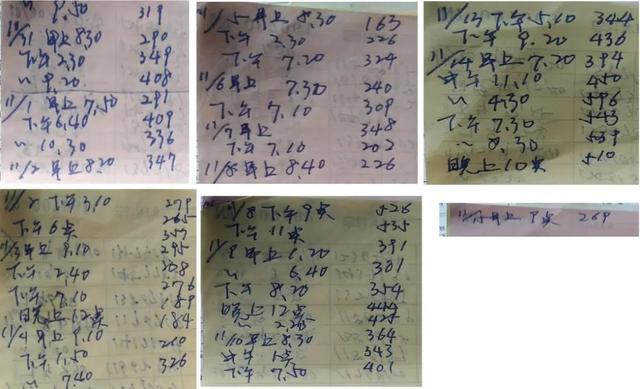 〃 9.50 319
11/31 早上8.30 290
下午2.30 349
〃 9.20 408
11/1 早上7.50 291
下午6.40 409
〃 10.30 336
11/2 早上8.20 347
11/5 早上8.30 163
下午 2.30 226
下午 7.20 324
11/6 早上 7.30 240
下午 7.10 309
11/7 早上 348
下午 7.10 202
11/8 早上 8.40 226
11/13 下午5.10 344
下午 9.20 436
11/14 早上7.20 394
中午 11.10 450
〃 4.30 596
下午 7.30 543
〃 8.30 539
晚上10点 510
11/2 下午3.10 279
下午6点 265
357
11/3 早上8.10 295
下午2.40 308
下午7.10 276
189
晚上12点 184
11/4 早上9.10 260
下午1.50 326
〃 7.40
11/8 下午9点 526
下午11点 535
11/9 早上1.20 391
〃 6.40 301
下午8.20 354
晚上12点
〃 427
11/10 早上8.30 364
中午1点 343
下午7.50 401
早上9点 269